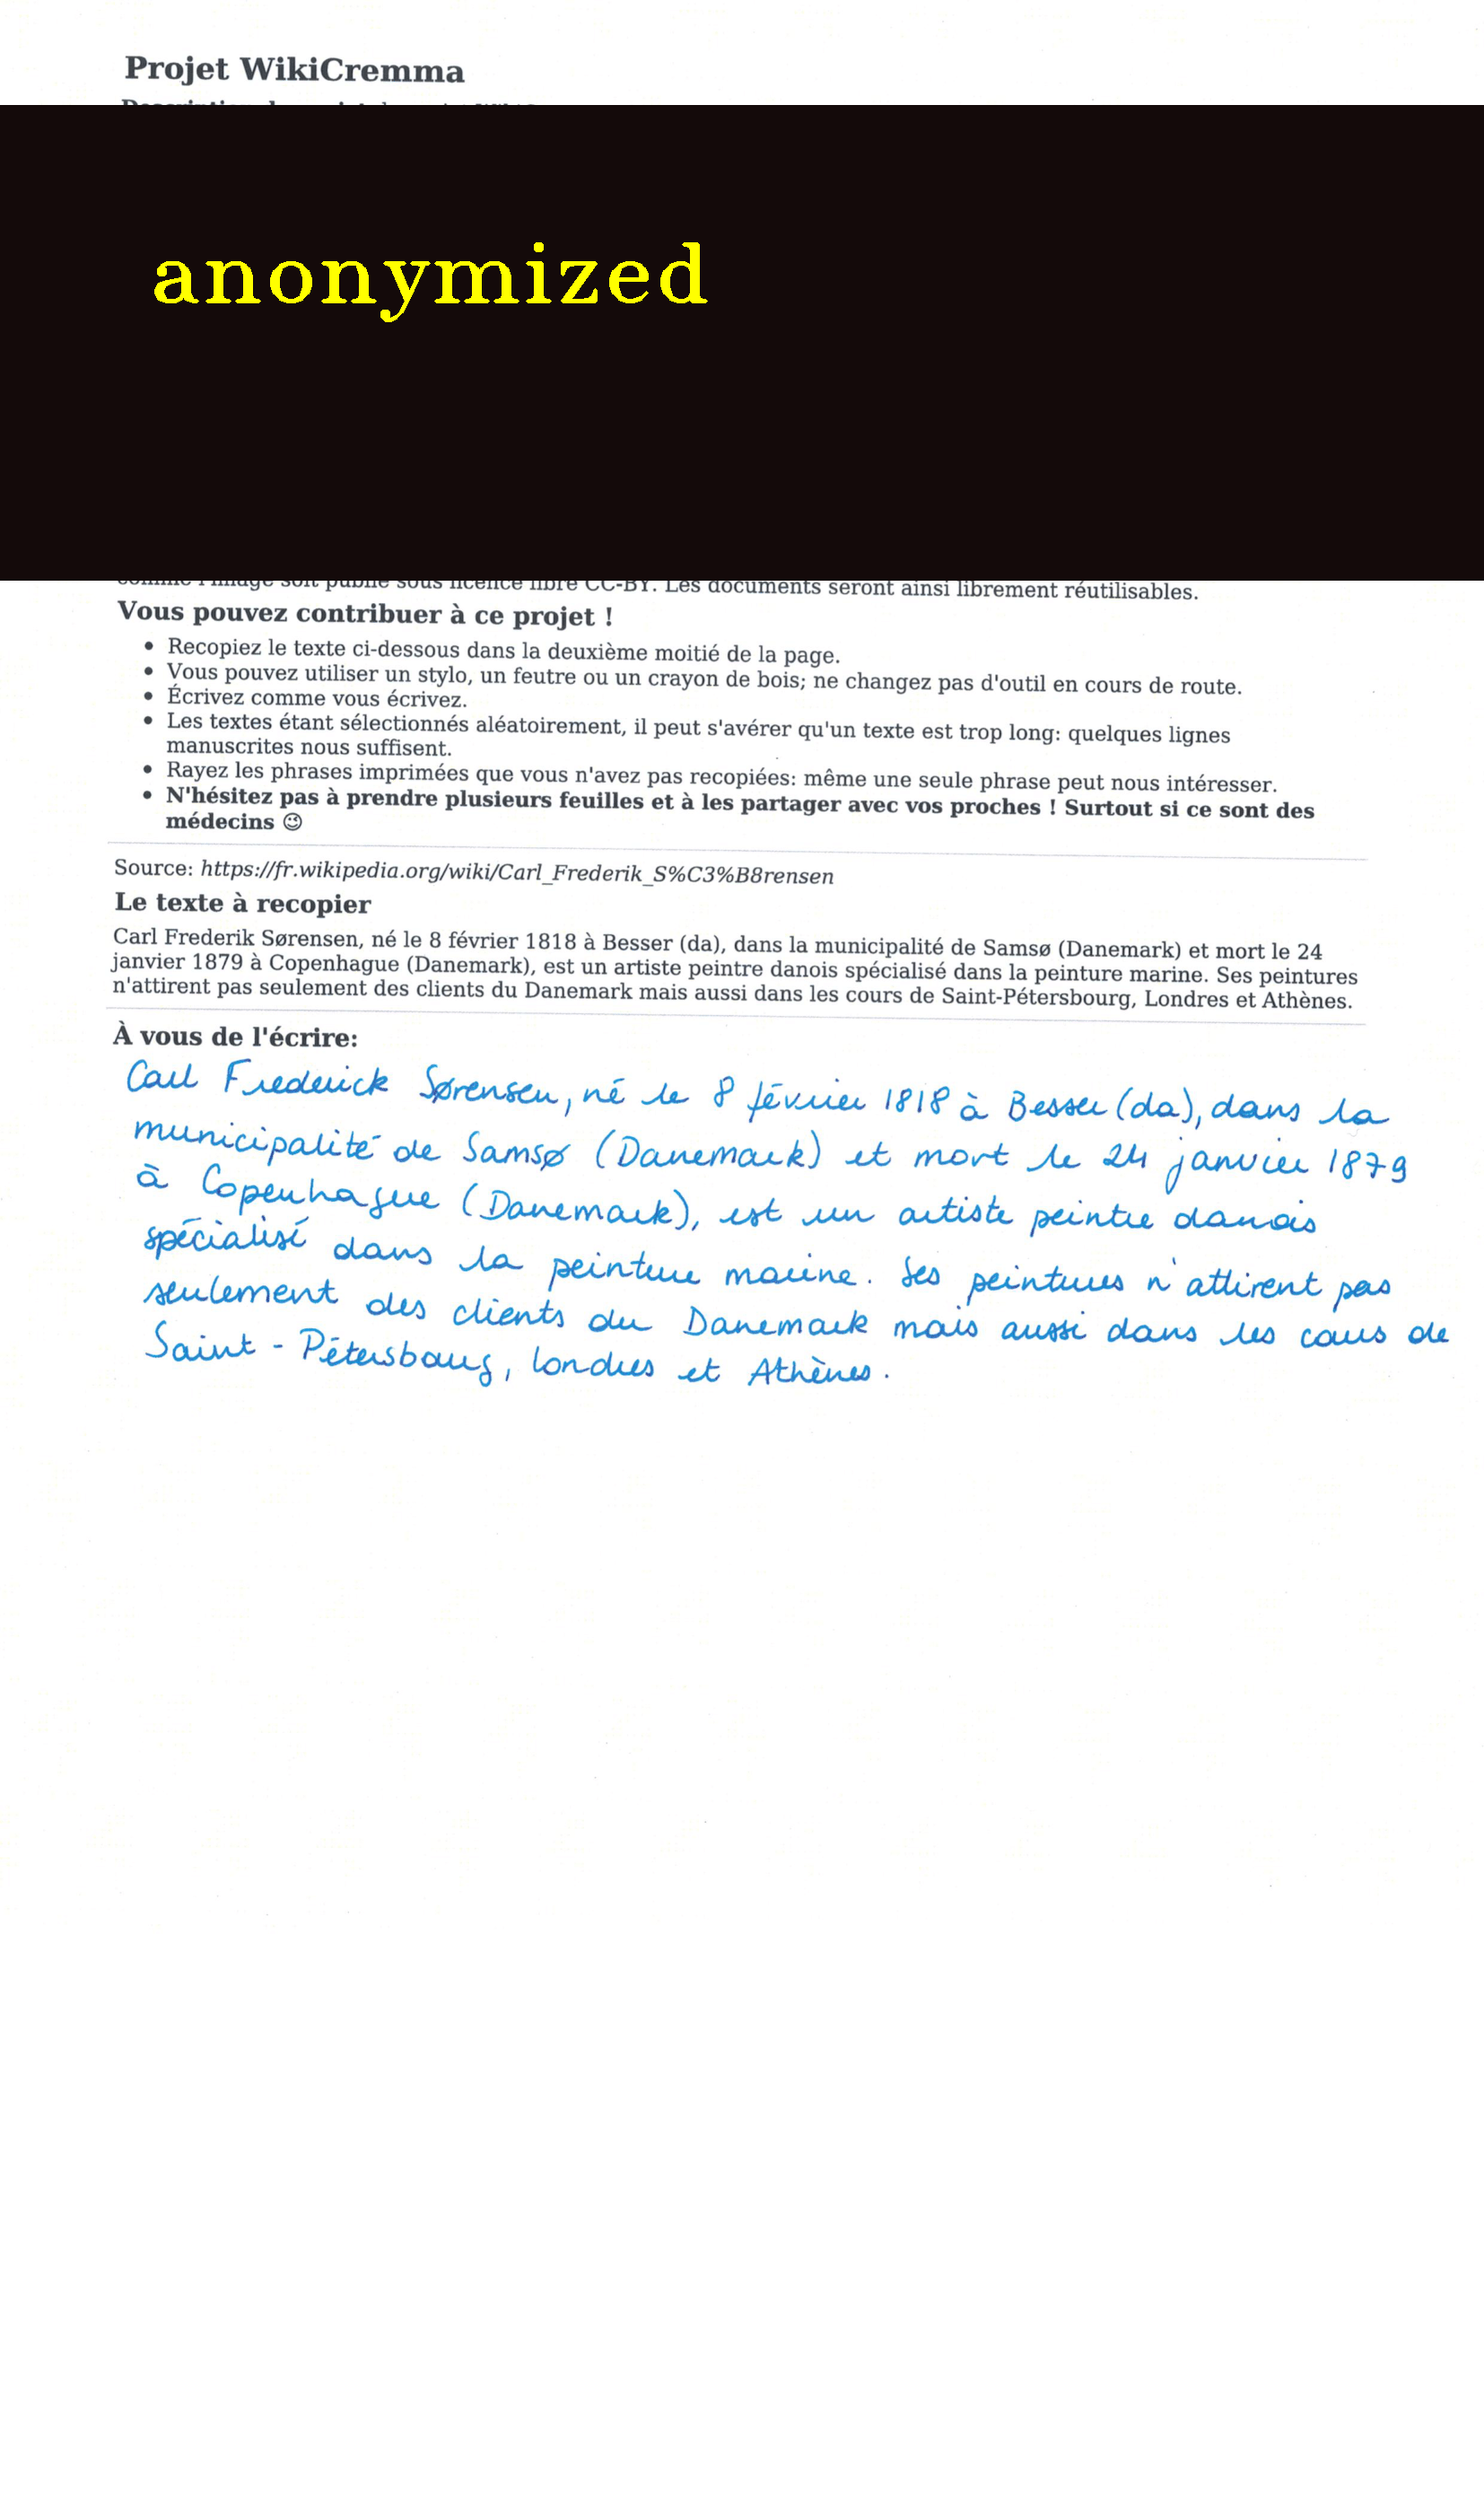 Projet WikiCremma
anonymized
comme l'image soit publié sous licence libre CC-BY. Les documents seront ainsi librement réutilisables.
Vous pouvez contribuer à ce projet !
• Recopiez le texte ci-dessous dans la deuxième moitié de la page.
• Vous pouvez utiliser un stylo, un feutre ou un crayon de bois; ne changez pas d'outil en cours de route.
• Écrivez comme vous écrivez.
• Les textes étant sélectionnés aléatoirement, il peut s'avérer qu'un texte est trop long: quelques lignes
manuscrites nous suffisent.
• Rayez les phrases imprimées que vous n'avez pas recopiées: même une seule phrase peut nous intéresser.
• N'hésitez pas à prendre plusieurs feuilles et à les partager avec vos proches ! Surtout si ce sont des
médecins 😉
Source: https://fr.wikipedia.org/wiki/Carl_Frederik_S%C3%B8rensen
Le texte à recopier
Carl Frederik Sørensen, né le 8 février 1818 à Besser (da), dans la municipalité de Samsø (Danemark) et mort le 24
janvier 1879 à Copenhague (Danemark), est un artiste peintre danois spécialisé dans la peinture marine. Ses peintures
n'attirent pas seulement des clients du Danemark mais aussi dans les cours de Saint-Pétersbourg, Londres et Athènes.
À vous de l'écrire:
Carl Frederick Sørensen, né le 8 février 1818 à Besser (da), dans la
municipalité de Samsø (Danemark) et mort le 24 janvier 1879
à Copenhague (Danemark), est un artiste peintre danois
spécialisé dans la peinture marine. Ses peintures n'attirent pas
seulement des clients du Danemark mais aussi dans les cours de
Saint-Pétersbourg, Londres et Athènes.